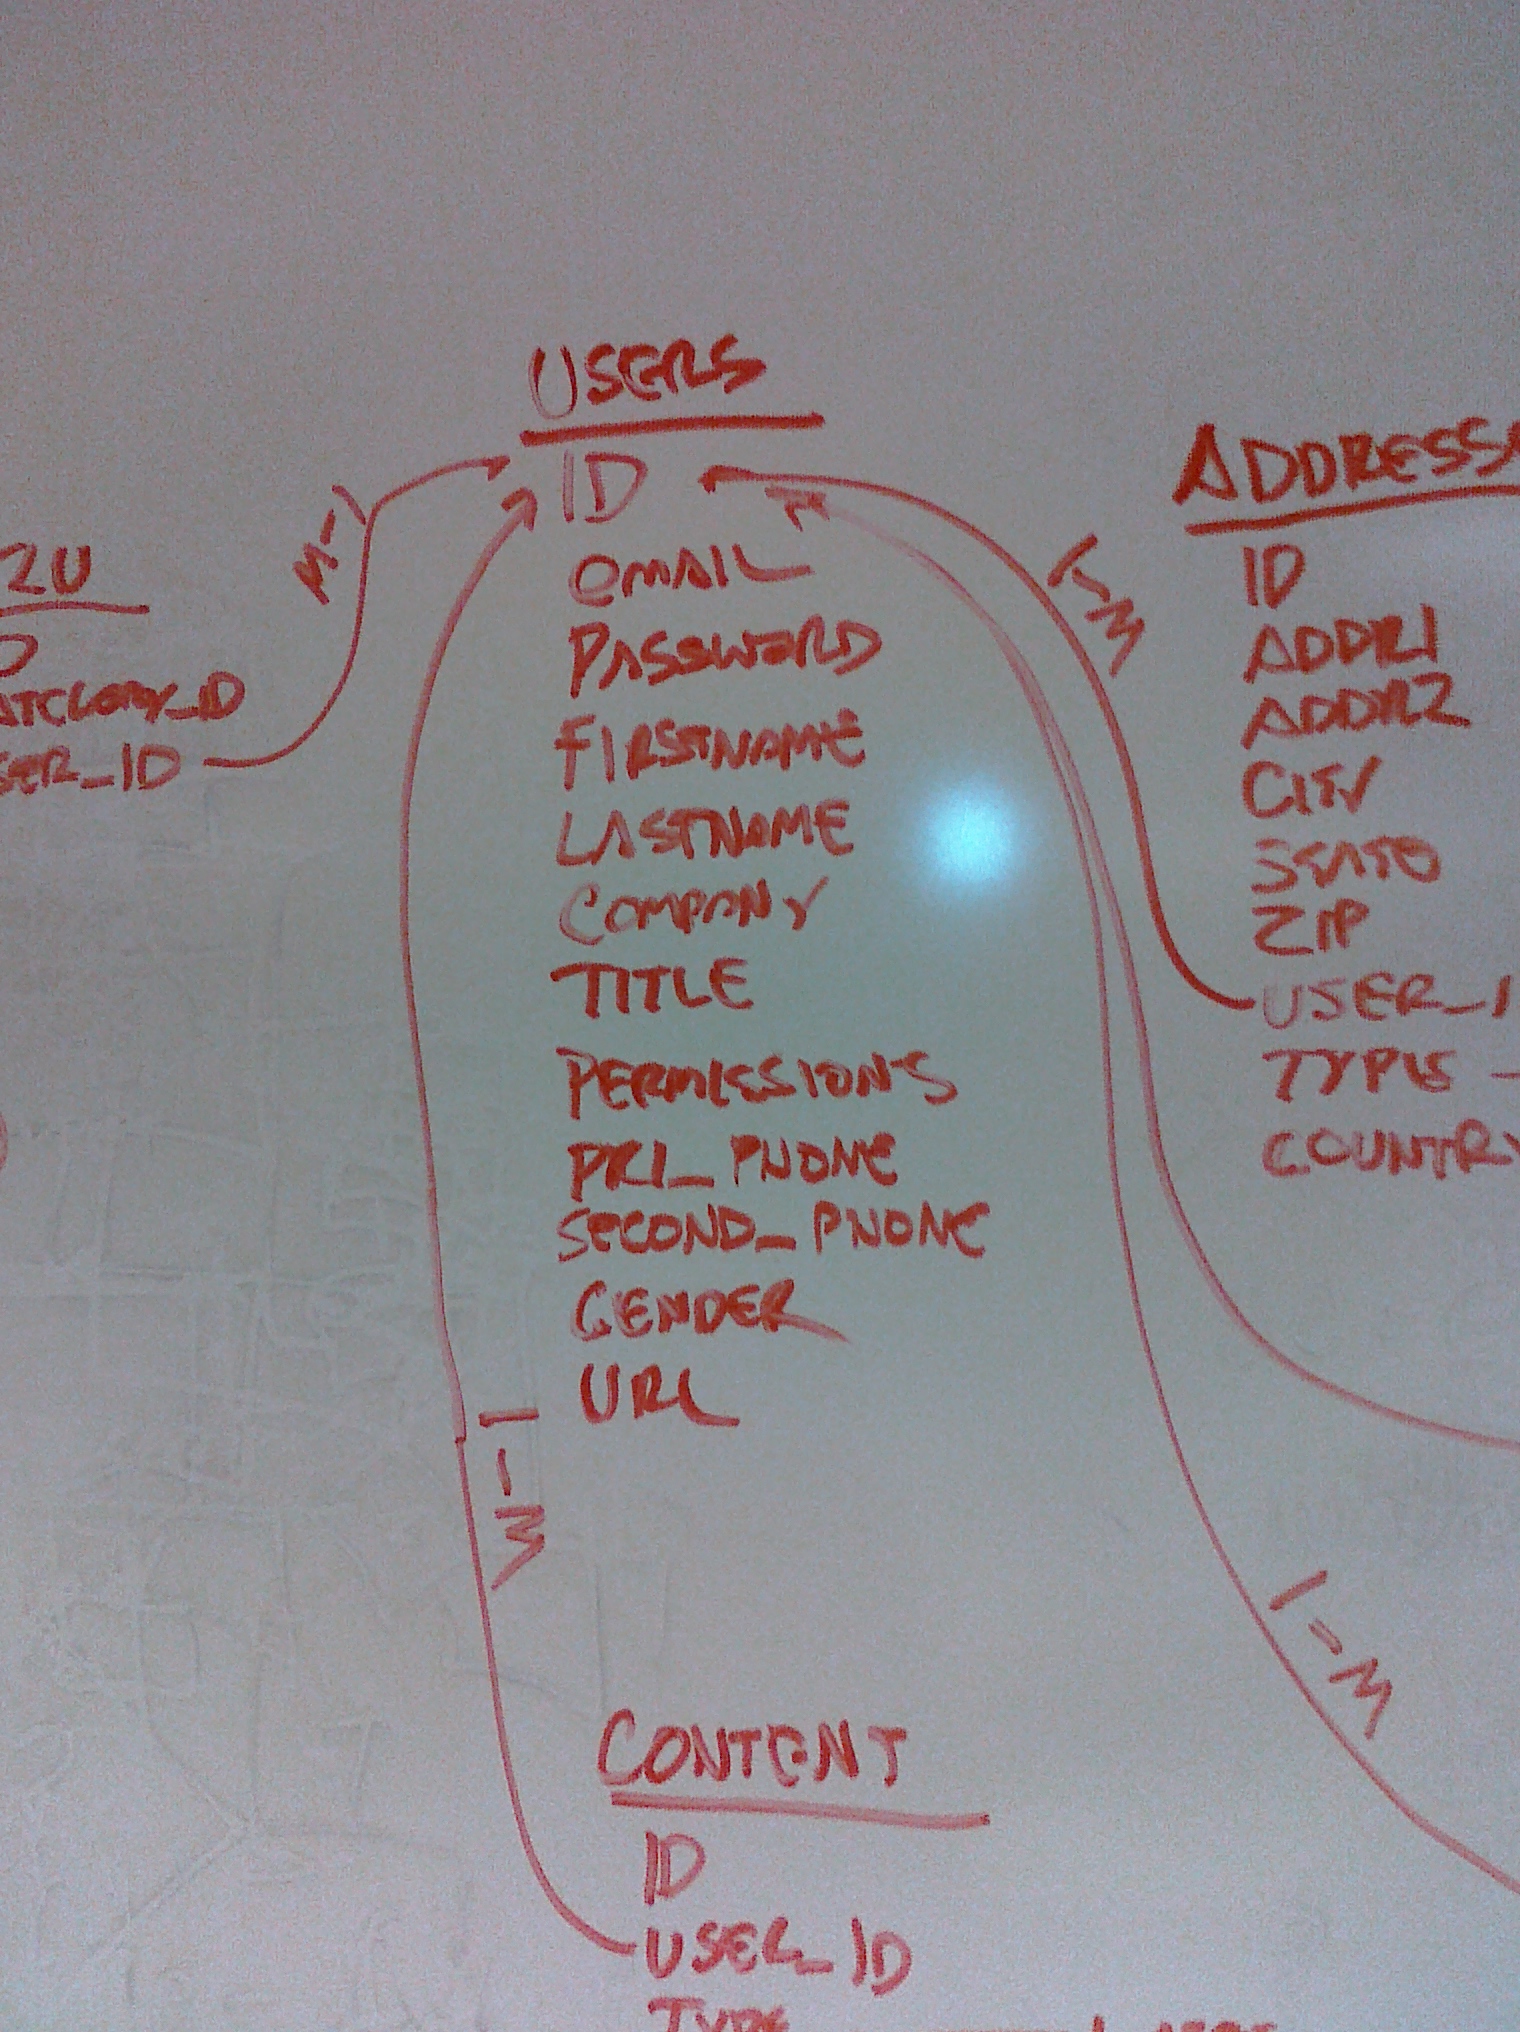 USERS
ID
EMAIL
PASSWORD
FIRSTNAME
LASTNAME
COMPANY
TITLE
PERMISSIONS
PRI_PHONE
SECOND_PHONE
GENDER
URL
M-1
2U
D
SER_ID
1-M
ADDRESS
ID
ADDR1
ADDR2
CITY
STATE
ZIP
USER_I
TYPE -
COUNTRY
1-M
1-M
CONTENT
ID
USER_ID
TYPE